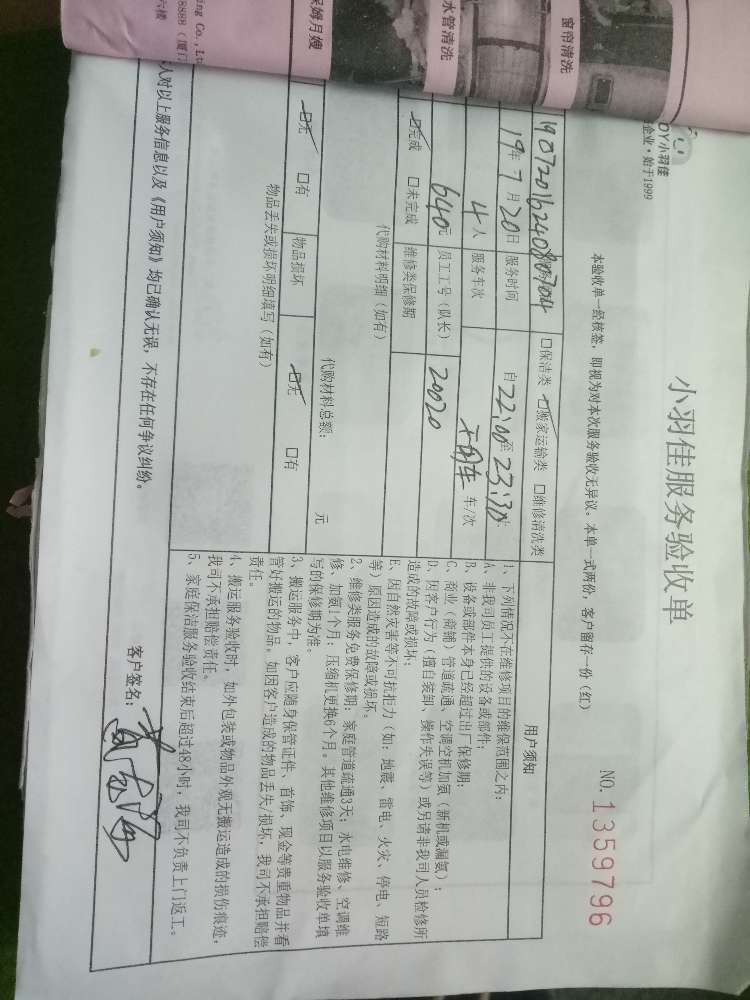 窗帘清洗
水管清洗
保姆月嫂
ing Co.,Lt
8888（厦门
六楼
DY小羽佳
企业·始于1999
小羽佳服务验收单
NO.1359796
本验收单一经核签，即视为对本次服务验收无异议。本单一式两份，客户留存一份（红）
□保洁类 □搬家运输类 □维修清洗类
19年7月20日 服务时间 自22:00至23:30
4人 服务车次 车/次
640元 员工工号（队长） 20020
□完成 □未完成 维修类保修期
代购材料明细（如有）
代购材料总额： 元
□无 □有 物品损坏 □无 □有
物品丢失或损坏明细填写（如有）
用户须知
1、下列情况不在维修项目的维保范围之内：
A、非我司员工提供的设备或部件；
B、设备或部件本身已经超过出厂保修期；
C、商业（商铺）管道疏通、空调空机加氨（新机或漏氨）；
D、因客户行为（擅自装卸、操作失误等）或另请非我司人员检修所
造成的故障或损坏；
E、因自然灾害等不可抗拒力（如：地震、雷电、火灾、停电、短路
等）原因造成的故障或损坏。
2、维修类服务免费保修期：家庭管道疏通3天；水电维修、空调维
修、加氨1个月；压缩机更换6个月。其他维修项目以服务验收单填
写的保修期为准。
3、搬运服务中，客户应随身保管证件、首饰、现金等贵重物品并看
管好搬运的物品。如因客户造成的物品丢失/损坏，我司不承担赔偿
责任。
4、搬运服务验收时，如外包装或物品外观无搬运造成的损伤痕迹，
我司不承担赔偿责任。
5、家庭保洁服务验收结束后超过48小时，我司不负责上门返工。
人对以上服务信息以及《用户须知》均已确认无误，不存在任何争议纠纷。
客户签名：